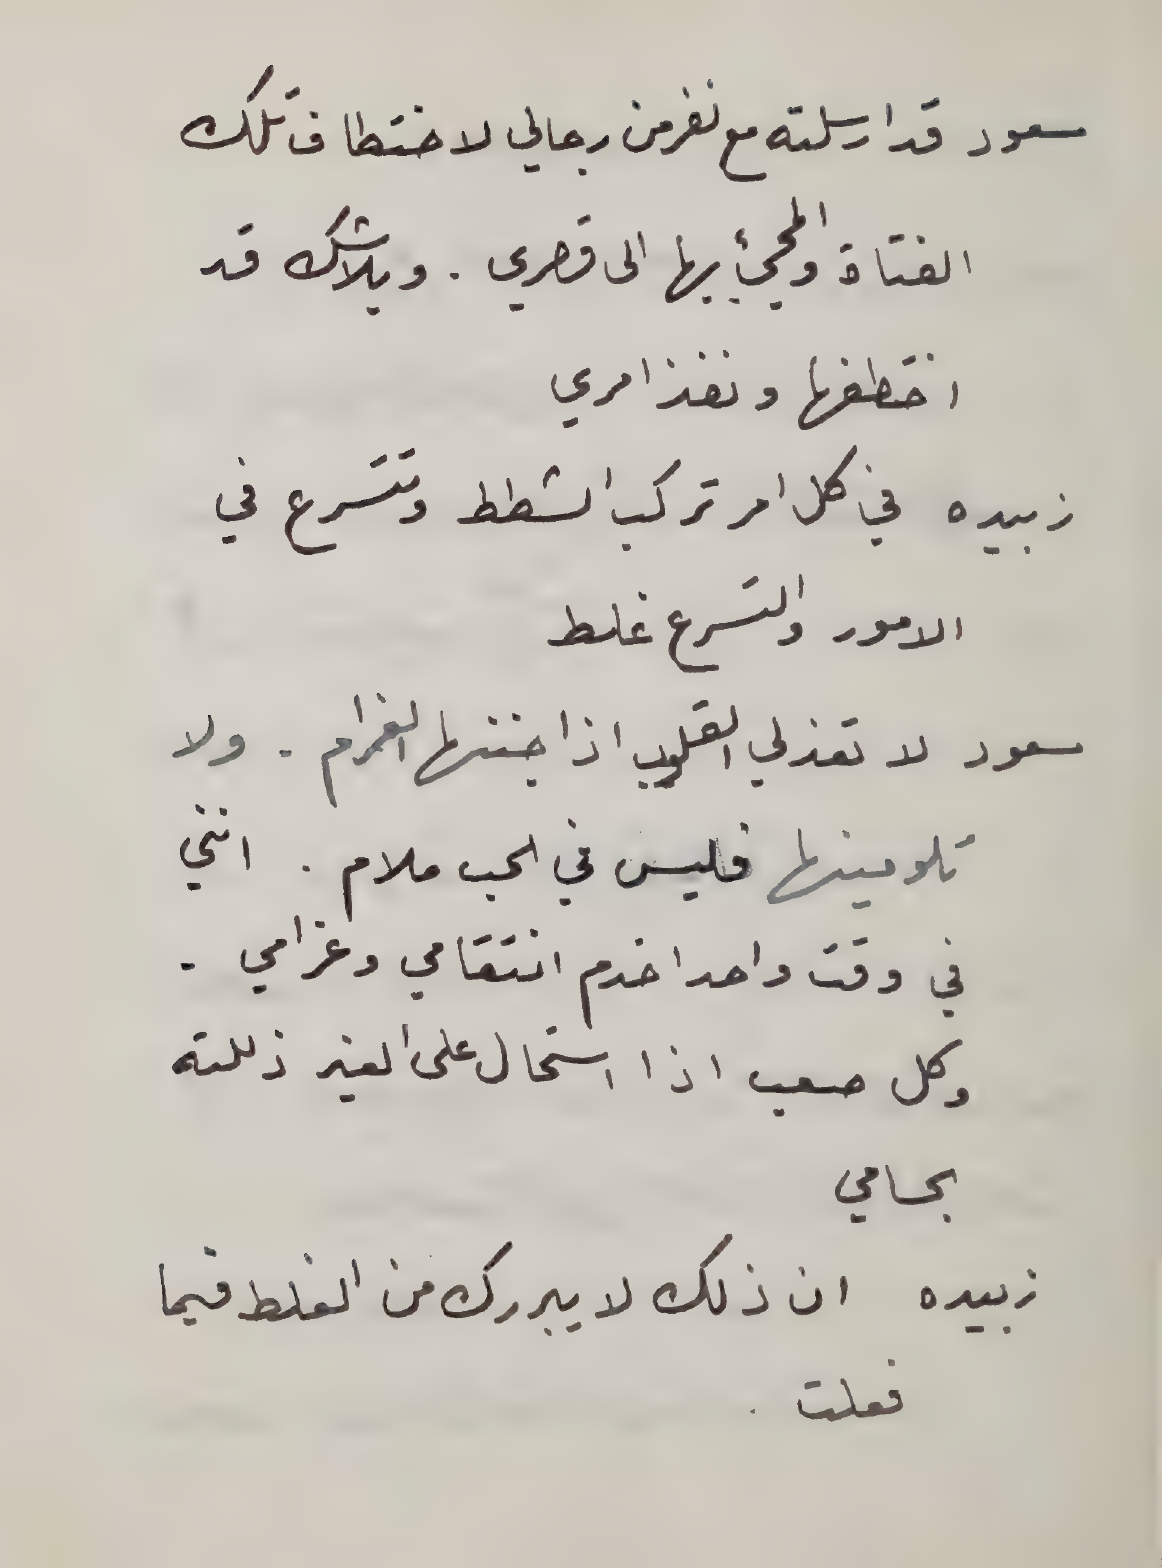 سعود قد ارسلته مع نفر من رجالي لاختطاف تلك
الفتاة والمجيئ بها الى قصري . وبلاشك قد
اختطفها ونفذ امري
زبيده في كل امر تركب الشطط وتتسرع في
الامور والتسرع غلط
سعود لا تعذلي القلوب اذا جننها الغرام . ولا
تلومينها فليس في الحب ملام . انني
في وقت واحد اخدم انتقامي وغرامي .
وكل صعب اذا استحال على الغير ذللته
بحسامي
زبيده ان ذلك لا يبررك من الغلط فيما
فعلت .